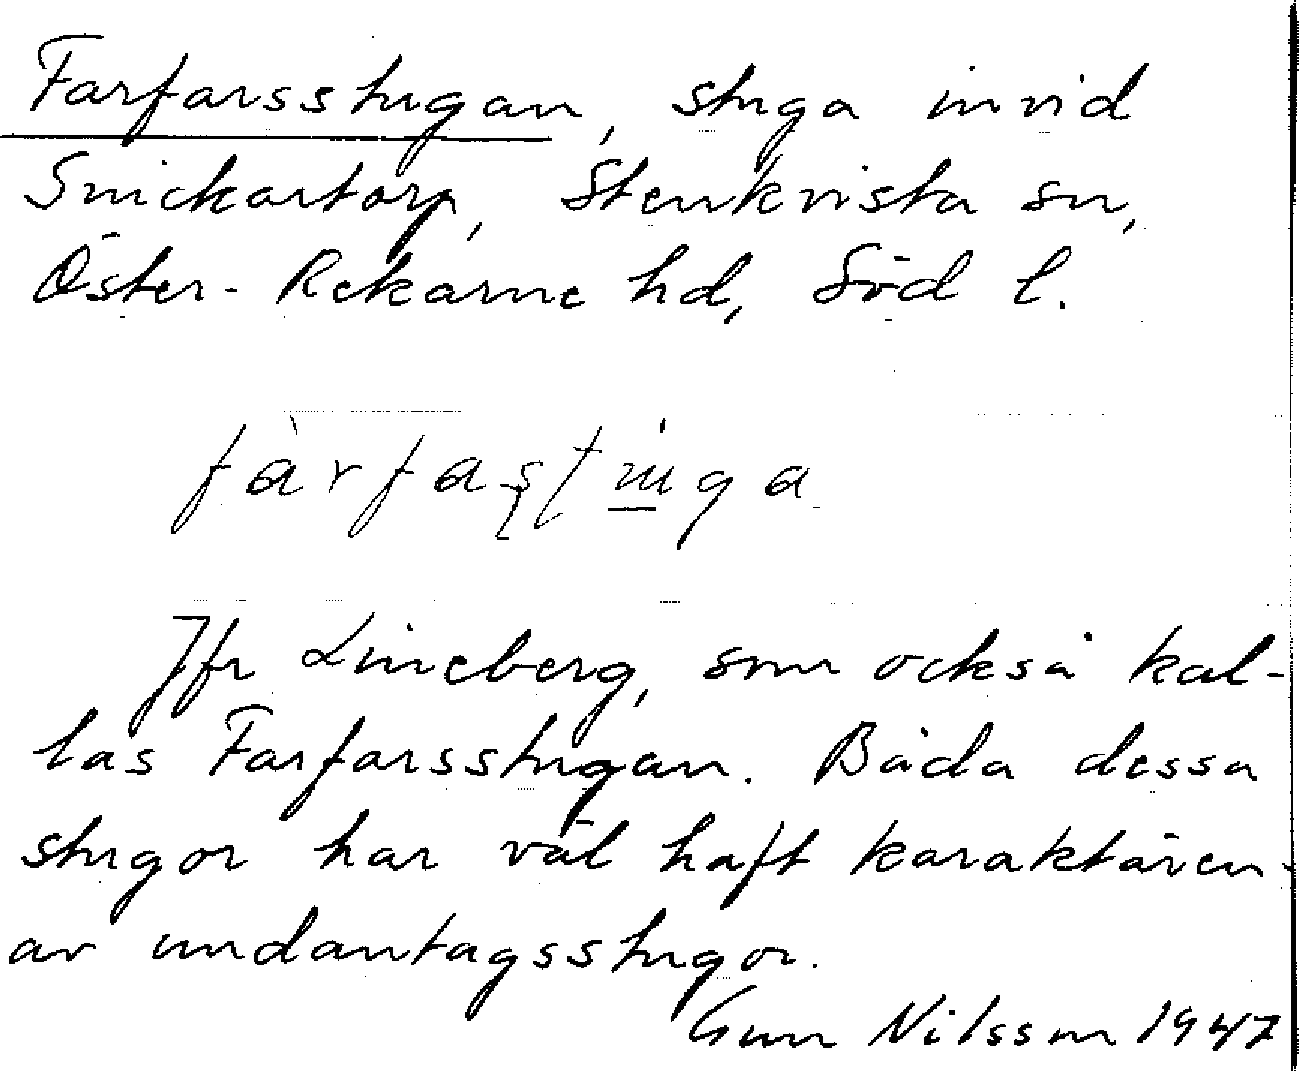 Farfarsstugan, stuga invid
Snickartorp, Stenkvista sn,
Öster-Rekarne hd, Söd l.
Jfr Lineberg, som också kal-
las Farfarsstugan. Båda dessa
stugor har väl haft karaktären
av undantagsstugor.
Gun Nilsson 1947